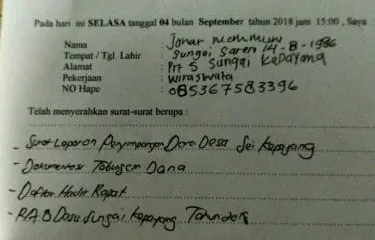 Pada hari ini SELASA tanggal 04 bulan September tahun 2018 jam 15:00 , Saya :
Nama : Jonar
Tempat / Tgl. Lahir : Sungai Saren 14-8-1986
Alamat : Prt 5 Sungai Kepayang
Pekerjaan : Wiraswata
NO Hape : 085367583396
Telah menyerahkan surat-surat berupa :
- Surat Laporan Penyimpangan Dana Desa Sei Kepayang
- Dokumentasi Tabungan Dana
- Daftar Hadir Rapat.
- RAB Desa Sungai Kepayang Tahun